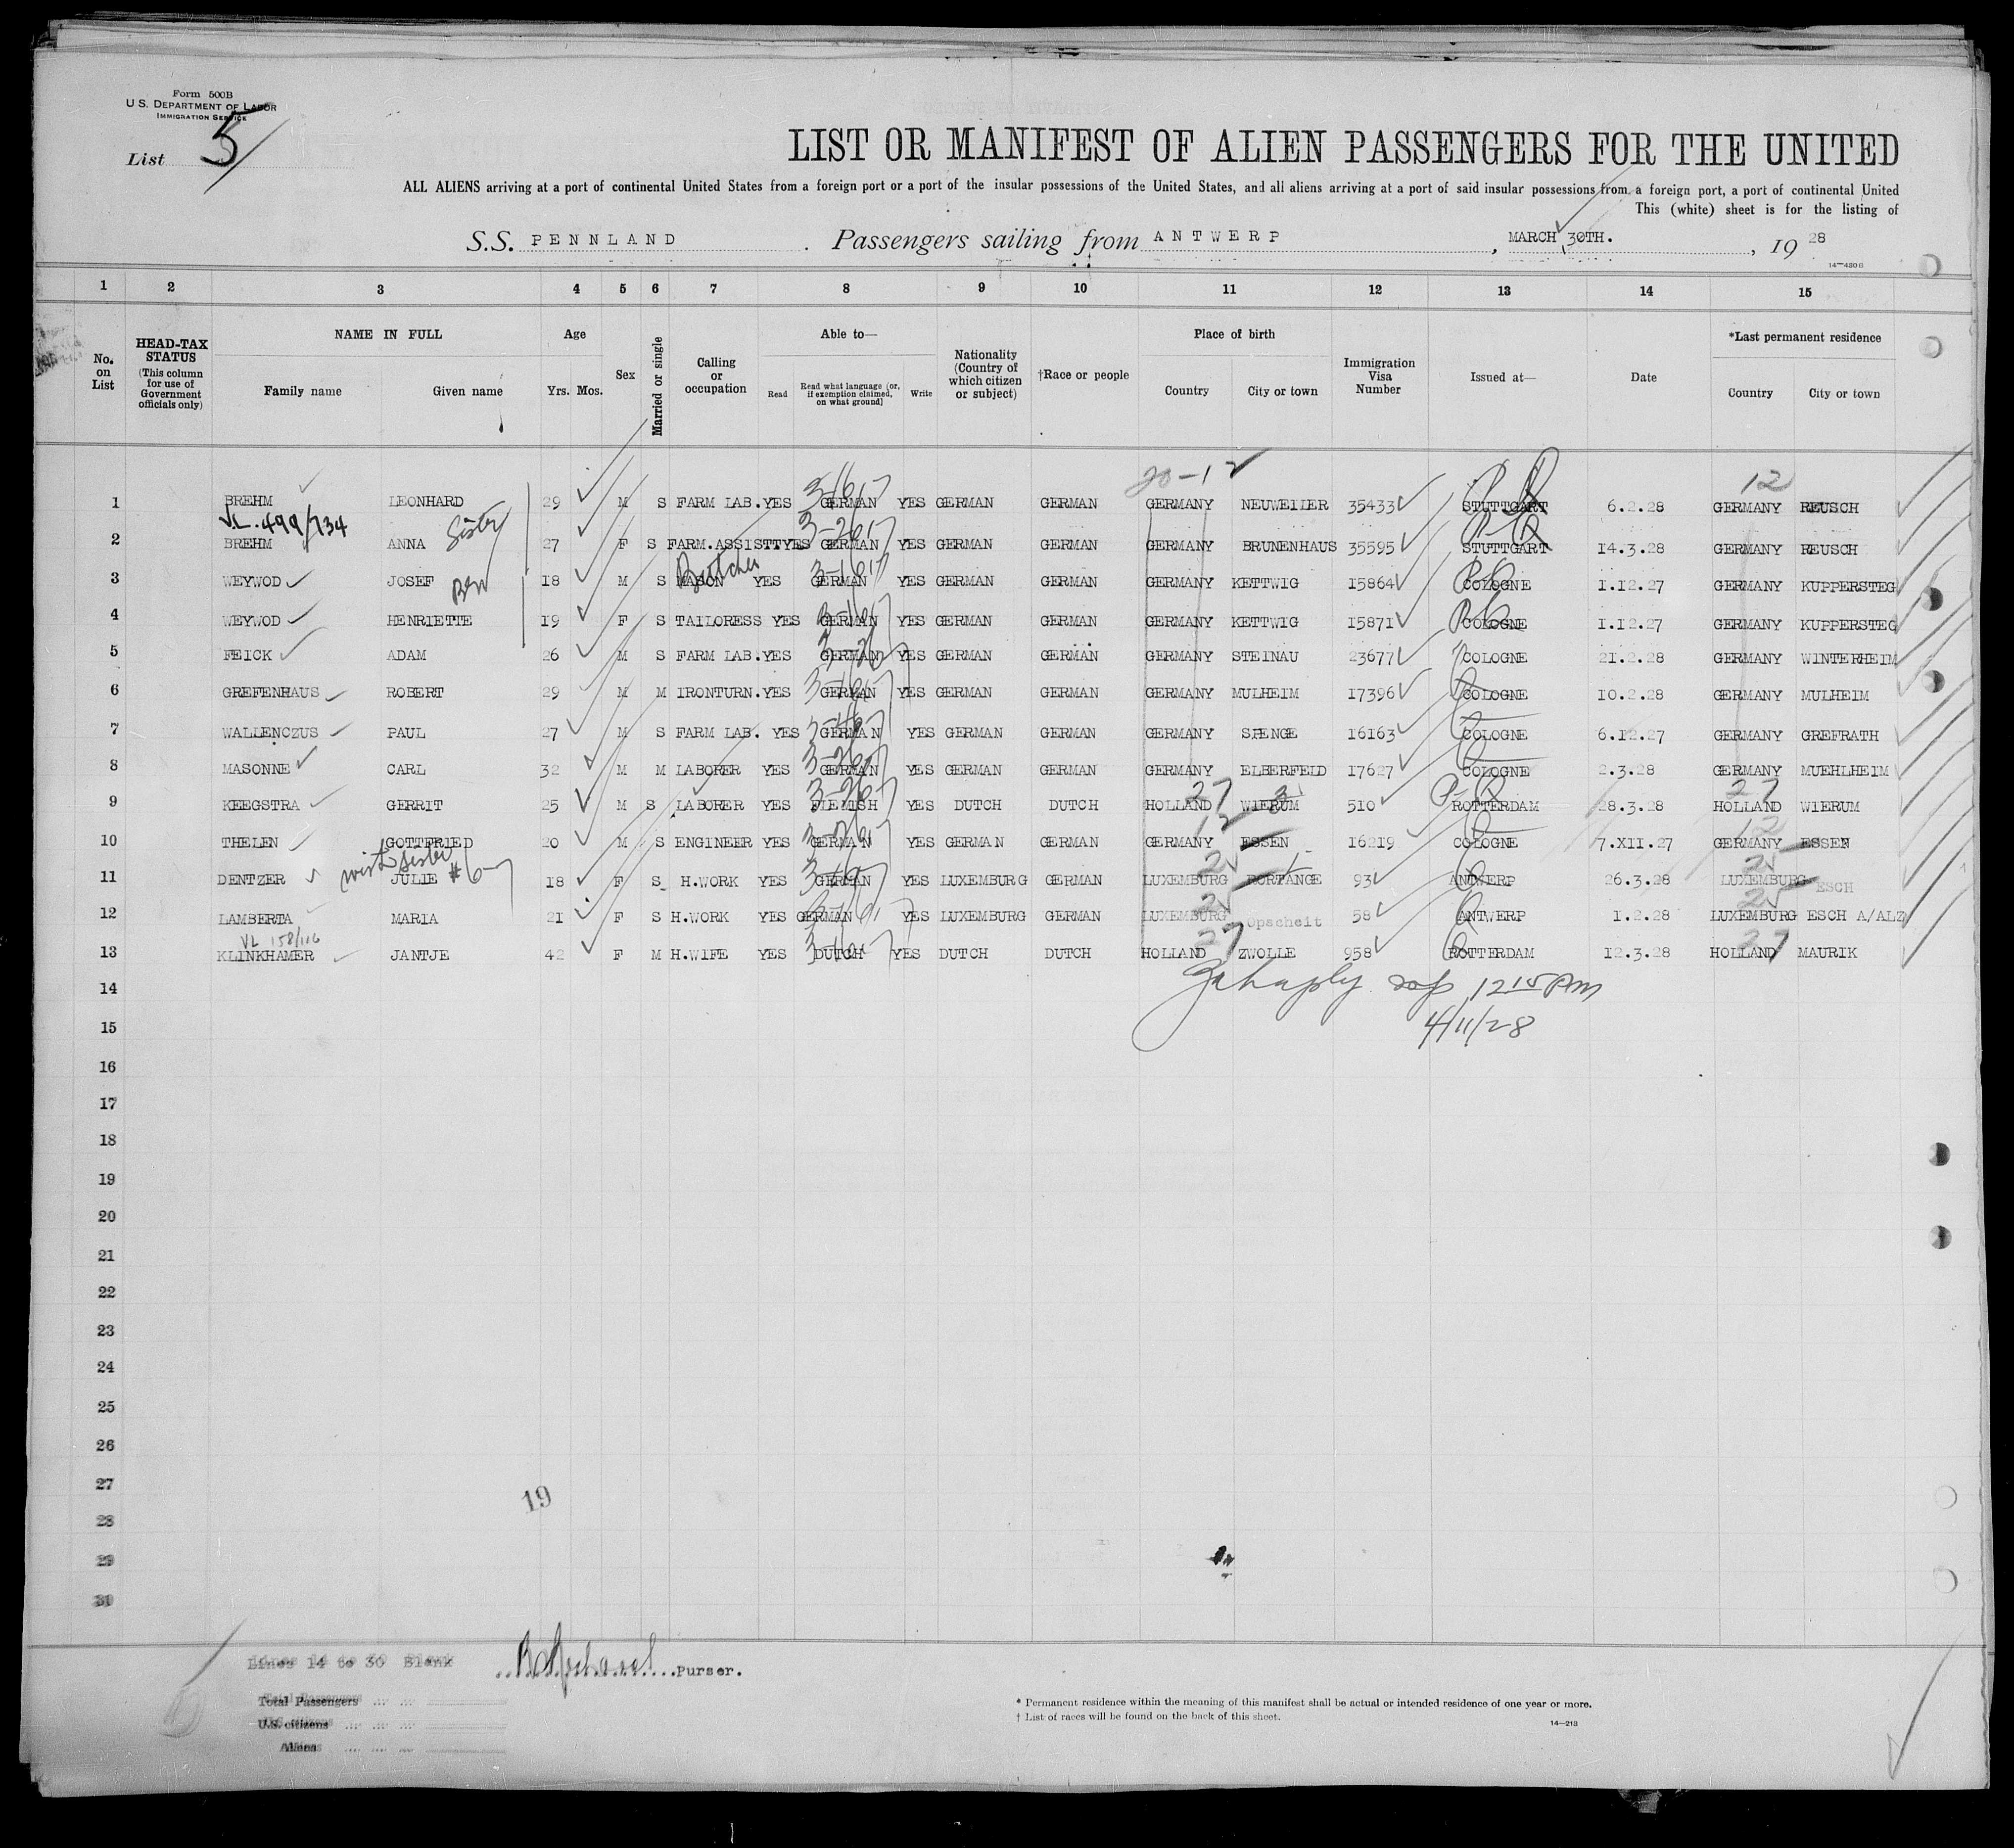 Form 500B
U.S. DEPARTMENT OF LABOR
IMMIGRATION SERVICE
List 5
LIST OR MANIFEST OF ALIEN PASSENGERS FOR THE UNITED
ALL ALIENS arriving at a port of continental United States from a foreign port or a port of the insular possessions of the United States, and all aliens arriving at a port of said insular possessions from a foreign port, a port of continental United
This (white) sheet is for the listing of
S.S. PENNLAND. Passengers sailing from ANTWERP, MARCH 30TH., 1928
14-430 B
1 2 3 4 5 6 7 8 9 10 11 12 13 14 15
No. on List
HEAD-TAX STATUS (This column for use of Government officials only)
NAME IN FULL Family name Given name
Age Yrs. Mos.
Sex
Married or single
Calling or occupation
Able to— Read Read what language (or, if exemption claimed, on what ground) Write
Nationality (Country of which citizen or subject)
†Race or people
Place of birth Country City or town
Immigration Visa Number
Issued at—
Date
*Last permanent residence Country City or town
20-12 12
1 BREHM LEONHARD 29 M S FARM LAB. YES GERMAN YES GERMAN GERMAN GERMANY NEUWEILER 35433 STUTTGART 6.2.28 GERMANY REUSCH
VL. 499/734 Sister
2 BREHM ANNA 27 F S FARM.ASSISTT YES GERMAN YES GERMAN GERMAN GERMANY BRUNENHAUS 35595 STUTTGART 14.3.28 GERMANY REUSCH
Butcher
3 WEYWOD JOSEF 18 M S MASON YES GERMAN YES GERMAN GERMAN GERMANY KETTWIG 15864 COLOGNE 1.12.27 GERMANY KUPPERSTEG
4 WEYWOD HENRIETTE 19 F S TAILORESS YES GERMAN YES GERMAN GERMAN GERMANY KETTWIG 15871 COLOGNE 1.12.27 GERMANY KUPPERSTEG
5 FEICK ADAM 26 M S FARM LAB. YES GERMAN YES GERMAN GERMAN GERMANY STEINAU 23677 COLOGNE 21.2.28 GERMANY WINTERHEIM
6 GREFENHAUS ROBERT 29 M M IRONTURN. YES GERMAN YES GERMAN GERMAN GERMANY MULHEIM 17396 COLOGNE 10.2.28 GERMANY MULHEIM
7 WALLENCZUS PAUL 27 M S FARM LAB. YES GERMAN YES GERMAN GERMAN GERMANY SPENGE 16163 COLOGNE 6.12.27 GERMANY GREFRATH
8 MASONNE CARL 32 M M LABORER YES GERMAN YES GERMAN GERMAN GERMANY ELBERFELD 17627 COLOGNE 2.3.28 GERMANY MUEHLHEIM
27 27
9 KEEGSTRA GERRIT 25 M S LABORER YES FLEMISH YES DUTCH DUTCH HOLLAND WIERUM 510 ROTTERDAM 28.3.28 HOLLAND WIERUM
12 12
10 THELEN GOTTFRIED 20 M S ENGINEER YES GERMAN YES GERMAN GERMAN GERMANY ESSEN 16219 COLOGNE 7.XII.27 GERMANY ESSEN
with sister #6 25 25
11 DENTZER JULIE 18 F S H.WORK YES GERMAN YES LUXEMBURG GERMAN LUXEMBURG RORTANGE 93 ANTWERP 26.3.28 LUXEMBURG ESCH
25 25
12 LAMBERTA MARIA 21 F S H.WORK YES GERMAN YES LUXEMBURG GERMAN LUXEMBURG Opscheit 58 ANTWERP 1.2.28 LUXEMBURG ESCH A/ALZ
VL 158/116 27 27
13 KLINKHAMER JANTJE 42 F M H.WIFE YES DUTCH YES DUTCH DUTCH HOLLAND ZWOLLE 958 ROTTERDAM 12.3.28 HOLLAND MAURIK
14
12 15 PM
15
4/11/28
16
17
18
19
20
21
22
23
24
25
26
27
19
28
29
30
Lines 14 to 30 Blank
Purser.
Total Passengers
U.S. citizens
Aliens
* Permanent residence within the meaning of this manifest shall be actual or intended residence of one year or more.
† List of races will be found on the back of this sheet.
14-213